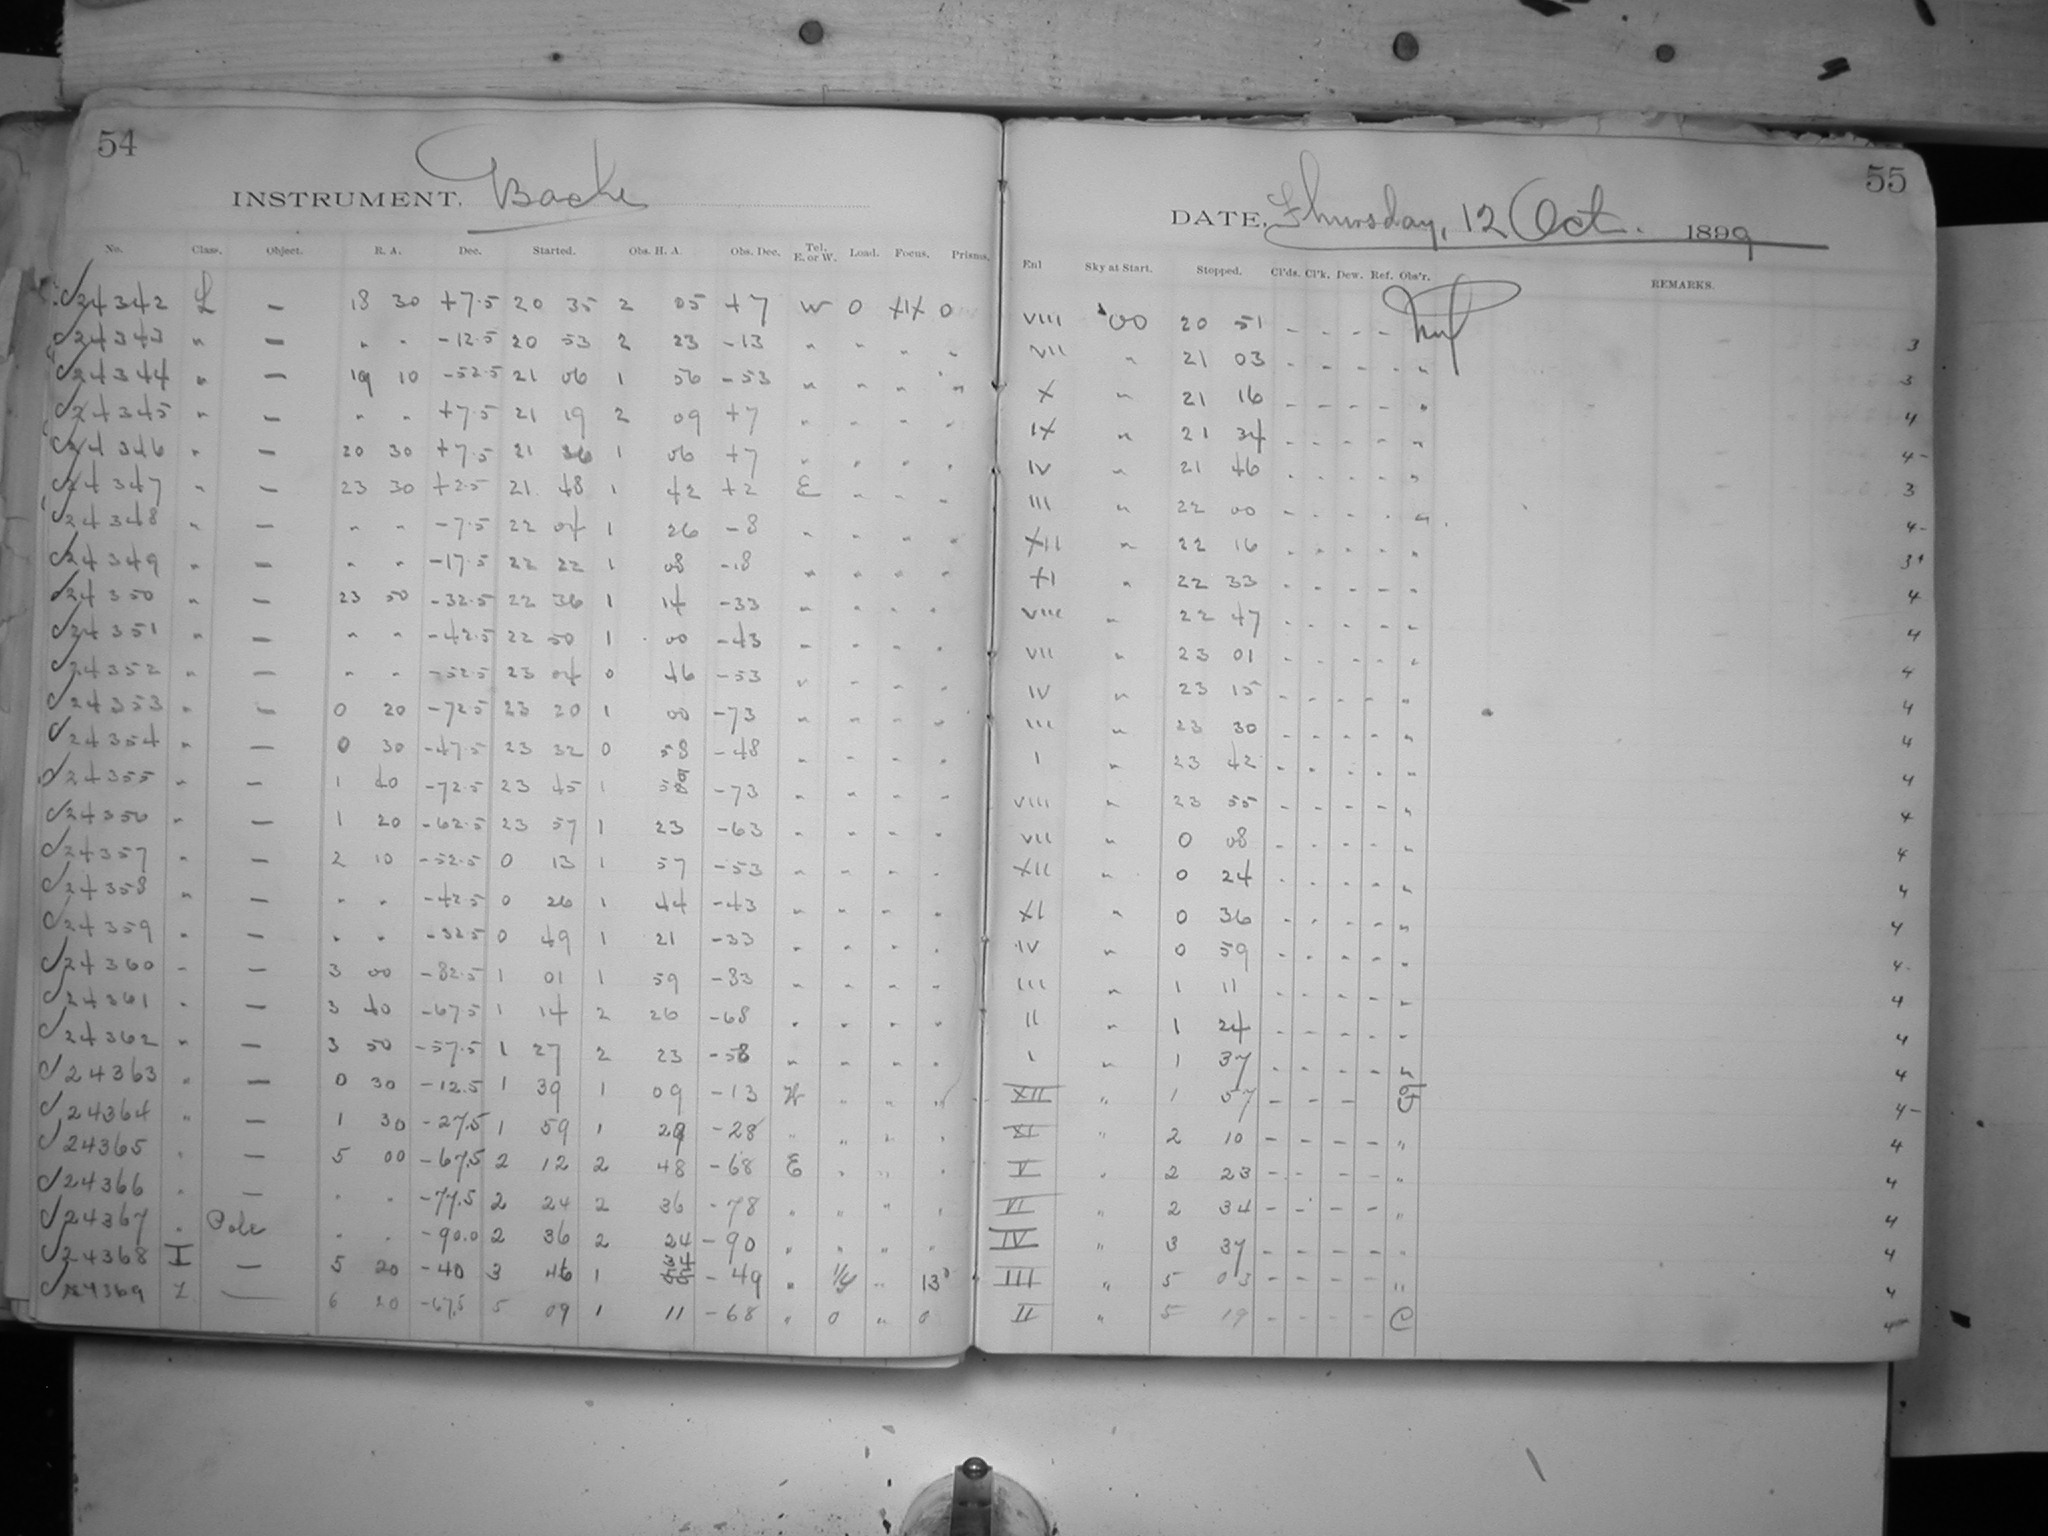 54
INSTRUMENT. Bache
No. Class. Object. R. A. Dec. Started. Obs. H. A. Obs. Dec. Tel. E. or W. Load. Focus. Prisms.
24342 L — 18 30 +7.5 20 35 2 05 +7 W 0 XIX 0
24343 " — " " -12.5 20 53 2 23 -13 " " " "
24344 " — 19 10 -52.5 21 06 1 56 -53 " " " "
24345 " — " " +7.5 21 19 2 09 +7 " " " "
24346 " — 20 30 +7.5 21 36 1 06 +7 " " " "
24347 " — 23 30 +2.5 21 48 1 42 +2 E " " "
24348 " — " " -7.5 22 04 1 26 -8 " " " "
24349 " — " " -17.5 22 22 1 08 -18 " " " "
24350 " — 23 50 -32.5 22 36 1 14 -33 " " " "
24351 " — " " -42.5 22 50 1 00 -43 " " " "
24352 " — " " -52.5 23 04 0 46 -53 " " " "
24353 " — 0 20 -72.5 23 20 1 00 -73 " " " "
24354 " — 0 30 -47.5 23 32 0 58 -48 " " " "
24355 " — 1 40 -72.5 23 45 1 -73 " " " "
24356 " — 1 20 -62.5 23 57 1 23 -63 " " " "
24357 " — 2 10 -52.5 0 13 1 57 -53 " " " "
24358 " — " " -42.5 0 26 1 44 -43 " " " "
24359 " — " " -32.5 0 49 1 21 -33 " " " "
24360 " — 3 00 -82.5 1 01 1 59 -83 " " " "
24361 " — 3 40 -67.5 1 14 2 26 -68 " " " "
24362 " — 3 50 -57.5 1 27 2 23 -58 " " " "
24363 " — 0 30 -12.5 1 39 1 09 -13 W " " "
24364 " — 1 30 -27.5 1 59 1 29 -28 " " " "
24365 " — 5 00 -67.5 2 12 2 48 -68 E " " "
24366 " — " " -77.5 2 24 2 36 -78 " " " "
24367 " Pole " " -90.0 2 36 2 24 -90 " " " "
24368 I — 5 20 -40 3 46 1 34 -49 " " 13°
24369 L — 6 20 -67.5 5 09 1 11 -68 " 0 " 0
55
DATE, Thursday, 12 Oct. 1899
Enl Sky at Start. Stopped. Cl'ds. Cl'k. Dew. Ref. Obs'r. REMARKS.
VIII 00 20 51 - - - -
VII " 21 03 - - - - " 3
X " 21 16 - - - - " 3
IX " 21 34 - - - - " 4
IV " 21 46 - - - - " 4-
III " 22 00 - - - - " 3
XII " 22 16 - - - - " 4-
XI " 22 33 - - - - " 3+
VIII " 22 47 - - - - " 4
VII " 23 01 - - - - " 4
IV " 23 15 - - - - " 4
III " 23 30 - - - - " 4
I " 23 42 - - - - " 4
VIII " 23 55 - - - - " 4
VII " 0 08 - - - - " 4
XII " 0 24 - - - - " 4
XI " 0 36 - - - - " 4
IV " 0 59 - - - - " 4
III " 1 11 - - - - " 4-
II " 1 24 - - - - " 4
I " 1 37 - - - - " 4
XII " 1 57 - - - 4
XI " 2 10 - - - - " 4-
V " 2 23 - - - - " 4
VI " 2 34 - - - - " 4
IV " 3 37 - - - - " 4
III " 5 03 - - - - " 4
II " 5 19 - - - - C 4
4-